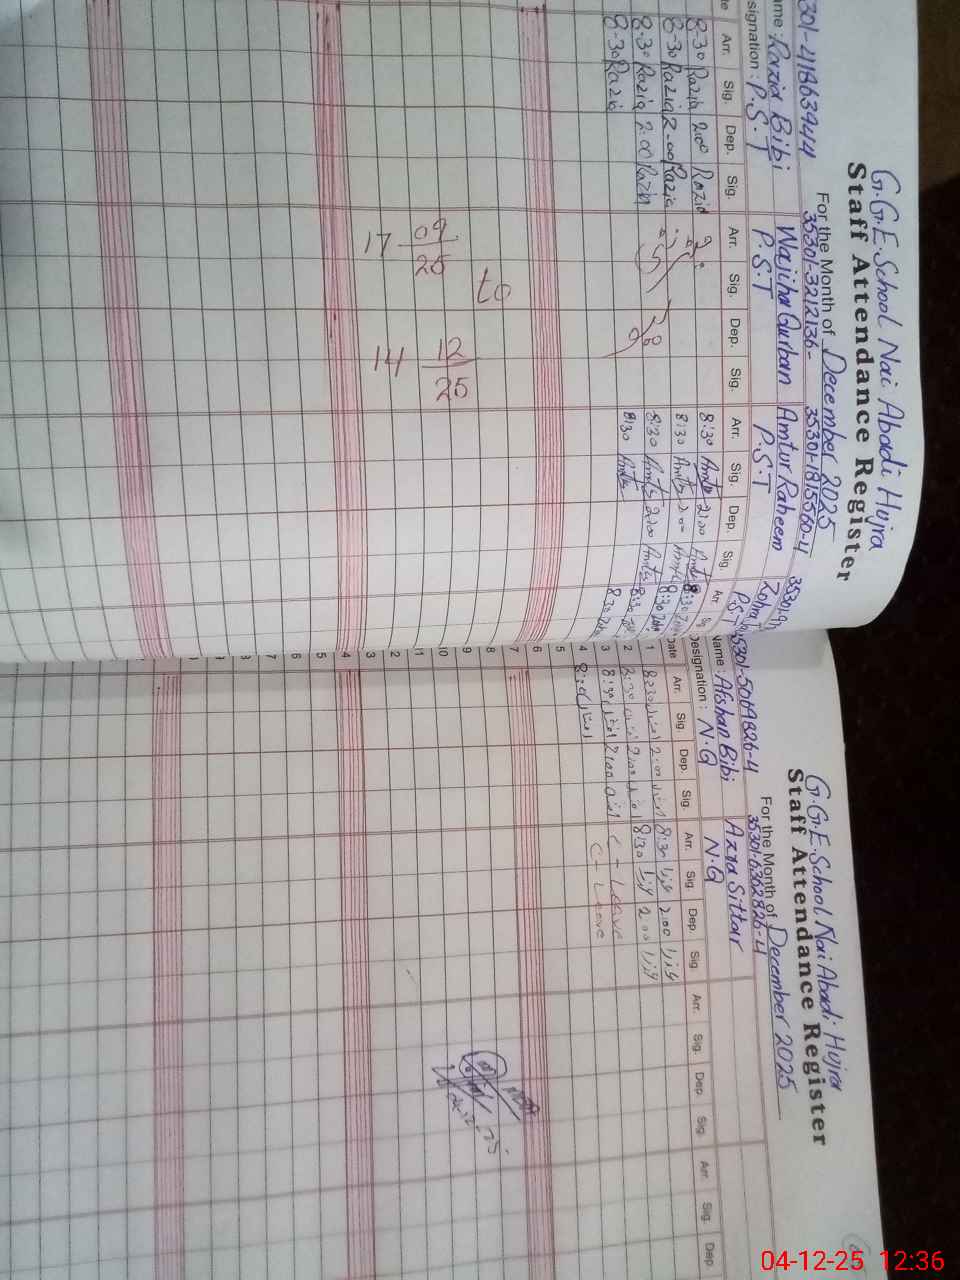 G.G.E.School Nai Abadi Hujra
Staff Attendance Register
For the Month of December 2025
301-41863944 35301-3212136- 35301-1815560-4
Razia Bibi Wajiha Qurban Amtur Raheem Zohra
signation: P.S.T P.S.T P.S.T P.S.T
Arr. Sig. Dep. Sig. Arr. Sig. Dep. Sig. Arr. Sig. Dep. Sig. Arr
8:30 Razia 2:00 Razia 8:30 Amtu 2:00 Amtu 8:30
8-30 Razia 2-00 Razia 8:30 Amtu 2:00 Amtu 8:30
8:30 Razia 2:00 Razia 8:30 Amtu 2:00 Amtu 8:30
8-30 Razia 8:30 Amtu 8:30
17 09/25 to 14 12/25
G.G.E.School Nai Abadi Hujra
Staff Attendance Register
For the Month of December 2025
35301-5069826-4 35301-6302826-4
Name: Afshan Bibi Azra Sittar
Designation: N.Q N.Q
Date Arr. Sig. Dep. Sig. Arr. Sig. Dep. Sig. Arr. Sig. Dep. Sig. Arr. Sig. Dep
1 8:30 افشاں 2:00 افشاں 8:30 عذرا 2:00 عذرا
2 8:30 افشاں 2:00 افشاں 8:30 عذرا 2:00 عذرا
3 8:30 افشاں 2:00 افشاں C - Leave
4 8:30 افشاں C - Leave
5
6
7
8
9
10
11
2
3
4
5
6
7
8
9
04-12-25 12:36